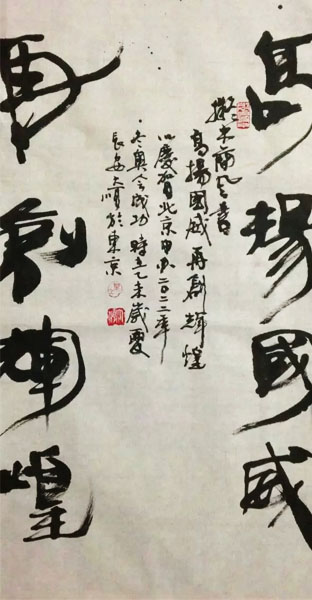 高揚國威
拟米南宫書
高揚國威再創輝煌
以慶賀北京申办二〇二二年
冬奥会成功時在乙未歲夏
長安 於東京
再創輝煌